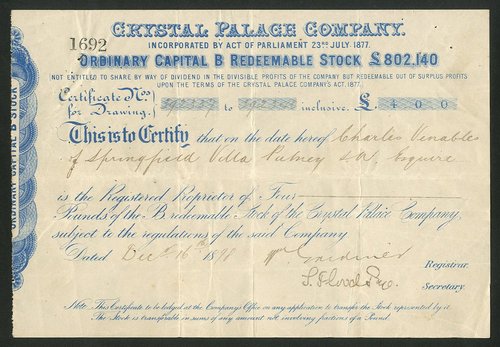 CRYSTAL PALACE COMPANY.
1692
INCORPORATED BY ACT OF PARLIAMENT 23RD JULY. 1877.
ORDINARY CAPITAL B REDEEMABLE STOCK £802,140
NOT ENTITLED TO SHARE BY WAY OF DIVIDEND IN THE DIVISIBLE PROFITS OF THE COMPANY BUT REDEEMABLE OUT OF SURPLUS PROFITS
UPON THE TERMS OF THE CRYSTAL PALACE COMPANY'S ACT, 1877.
Certificate Nos. for Drawing. to inclusive. £ 400
This is to Certify that on the date hereof Charles Venables
of Springfield Villa Putney S.W. Esquire
is the Registered Proprietor of Four
Pounds of the B redeemable Stock of the Crystal Palace Company,
subject to the regulations of the said Company.
Dated Decr 16th Wm Gardiner
Registrar.
Secretary.
Note. This Certificate to be lodged at the Company's Office on any application to transfer the Stock represented by it.
The Stock is transferable in sums of any amount not involving fractions of a Pound.
ORDINARY CAPITAL B STOCK